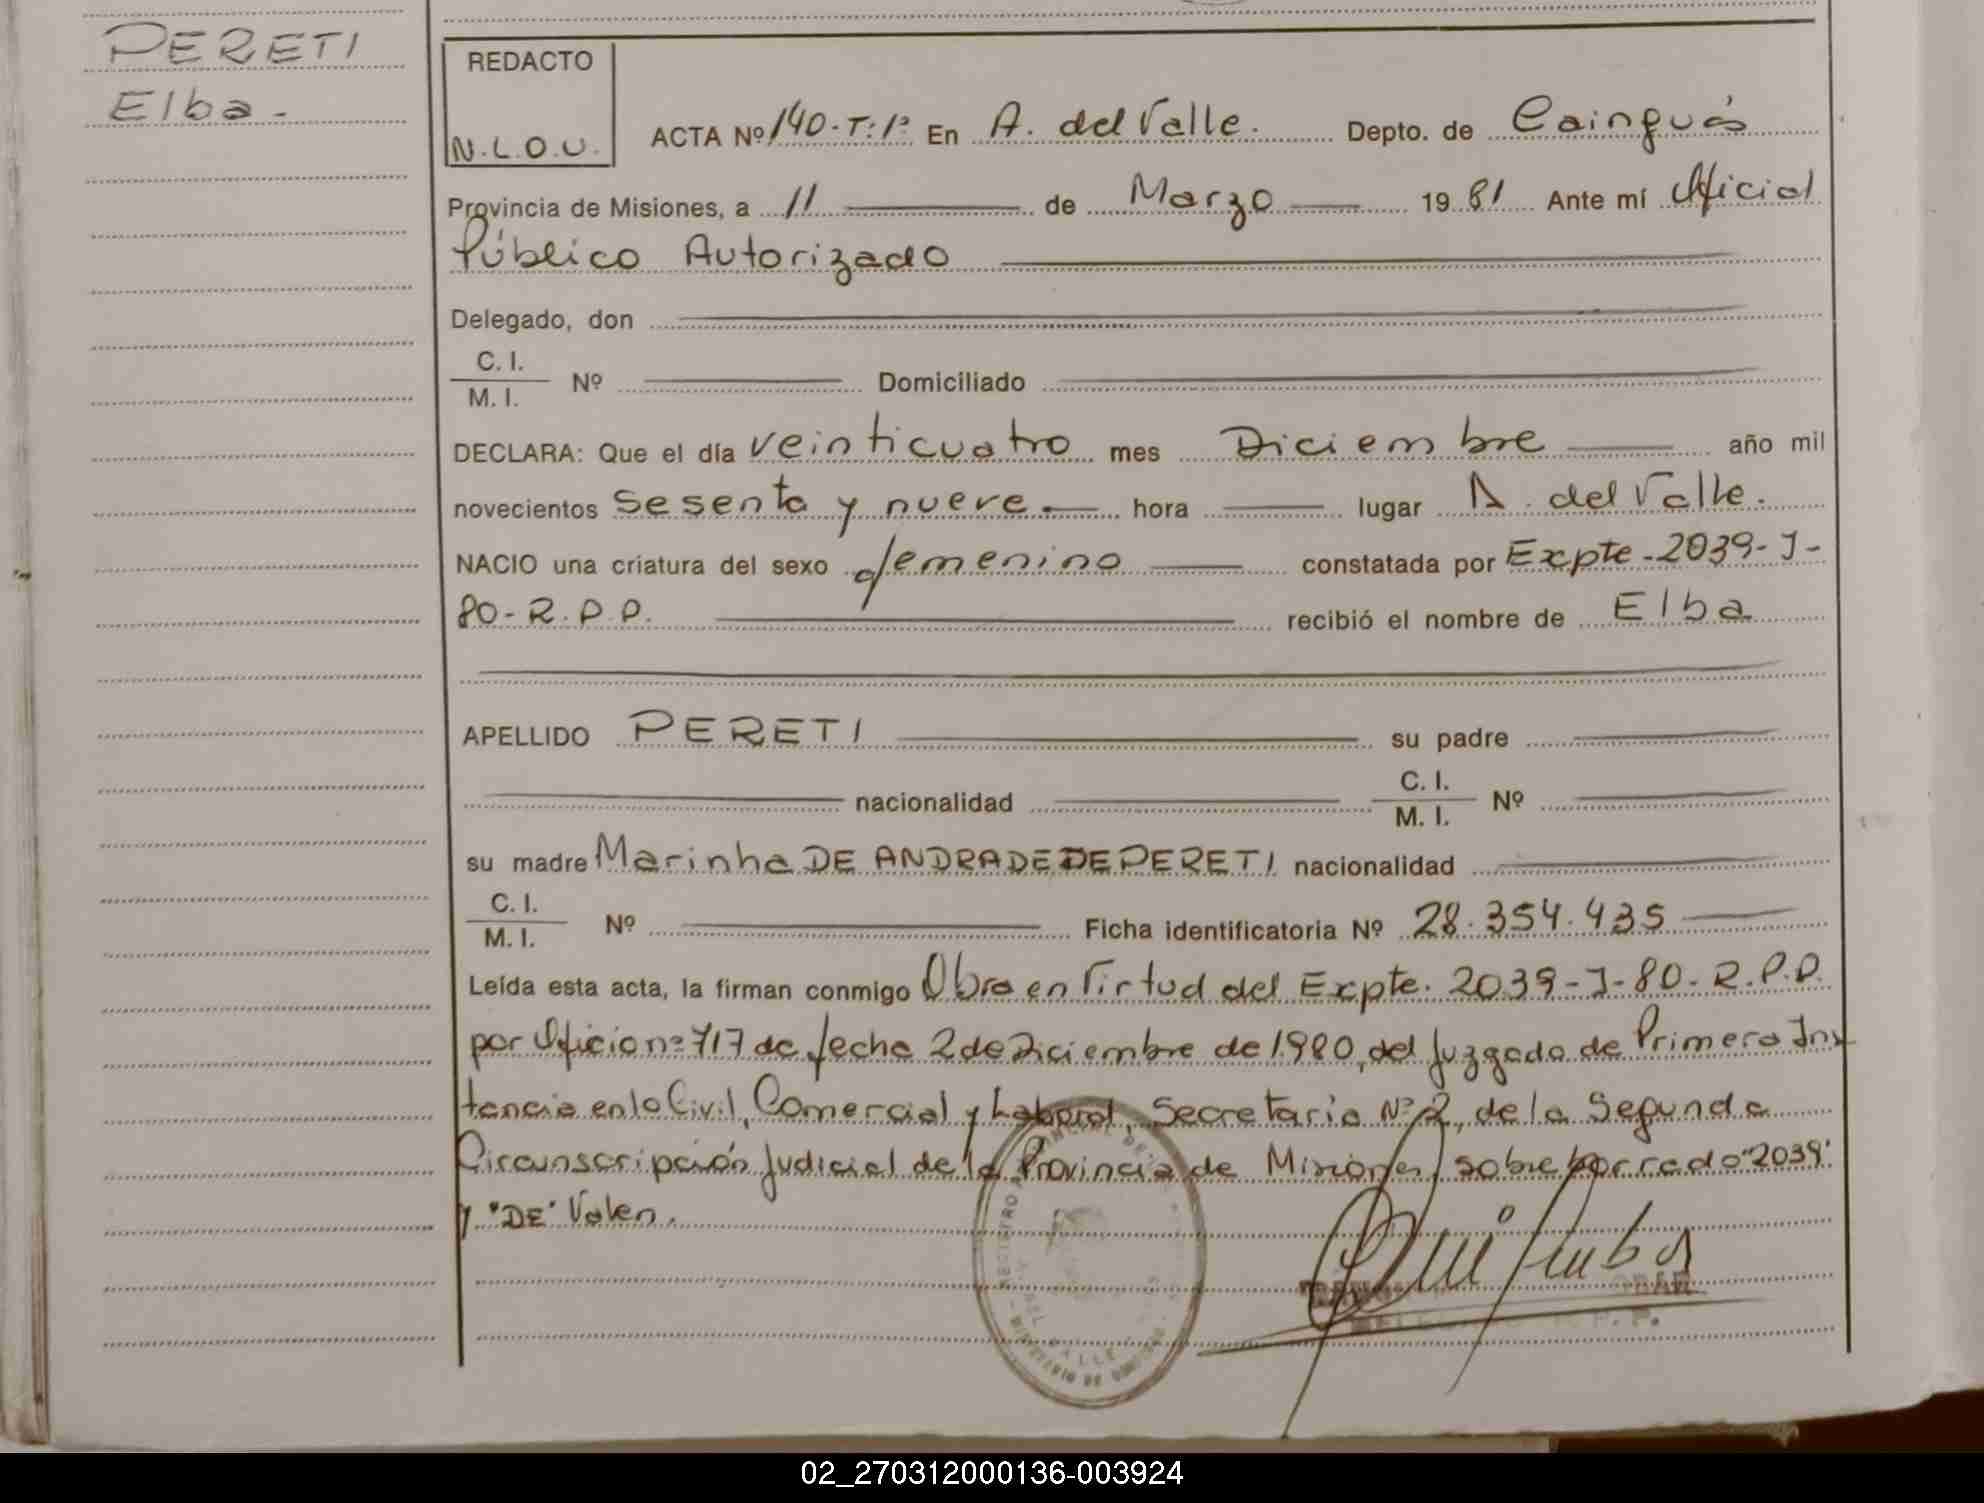 PERETI
Elba.-
REDACTO
N.L.O.U.
ACTA Nº 140-T:1º En A. del Valle. Depto. de Cainguás
Provincia de Misiones, a 11 de Marzo 1981 Ante mí Oficial
Público Autorizado
Delegado, don
C. I.
M. I. Nº Domiciliado
DECLARA: Que el día veinticuatro mes Diciembre año mil
novecientos sesenta y nueve.- hora lugar A. del Valle.
NACIO una criatura del sexo femenino constatada por Expte-2039-J-
80-R.P.P. recibió el nombre de Elba
APELLIDO PERETI su padre
nacionalidad C. I.
M. I. Nº
su madre Marinha DE ANDRADE DE PERETI nacionalidad
C. I.
M. I. Nº Ficha identificatoria Nº 28.354.435
Leída esta acta, la firman conmigo Obra en Virtud del Expte. 2039-J-80-R.P.P.
por Oficio nº 717 de fecha 2 de Diciembre de 1980, del Juzgado de Primera Ins
tancia en lo Civil, Comercial y Laboral, Secretaria Nº 2, de la Segunda
Circunscripción Judicial de la Provincia de Misiones, sobre borrado "2039"
y "DE" Valen.
02_270312000136-003924